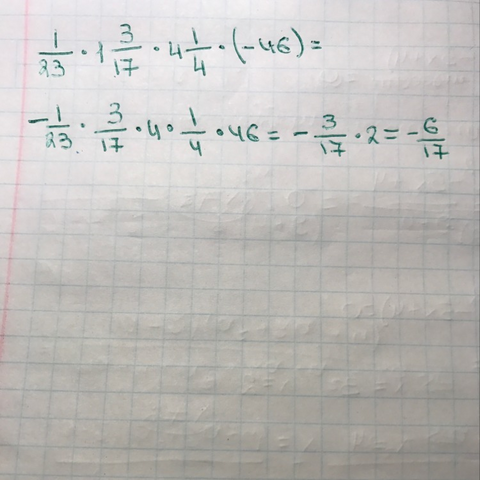 1/23 · 1 3/17 · 4 1/4 · (-46) =
-1/23 · 3/17 · 4 · 1/4 · 46 = -3/17 · 2 = -6/17